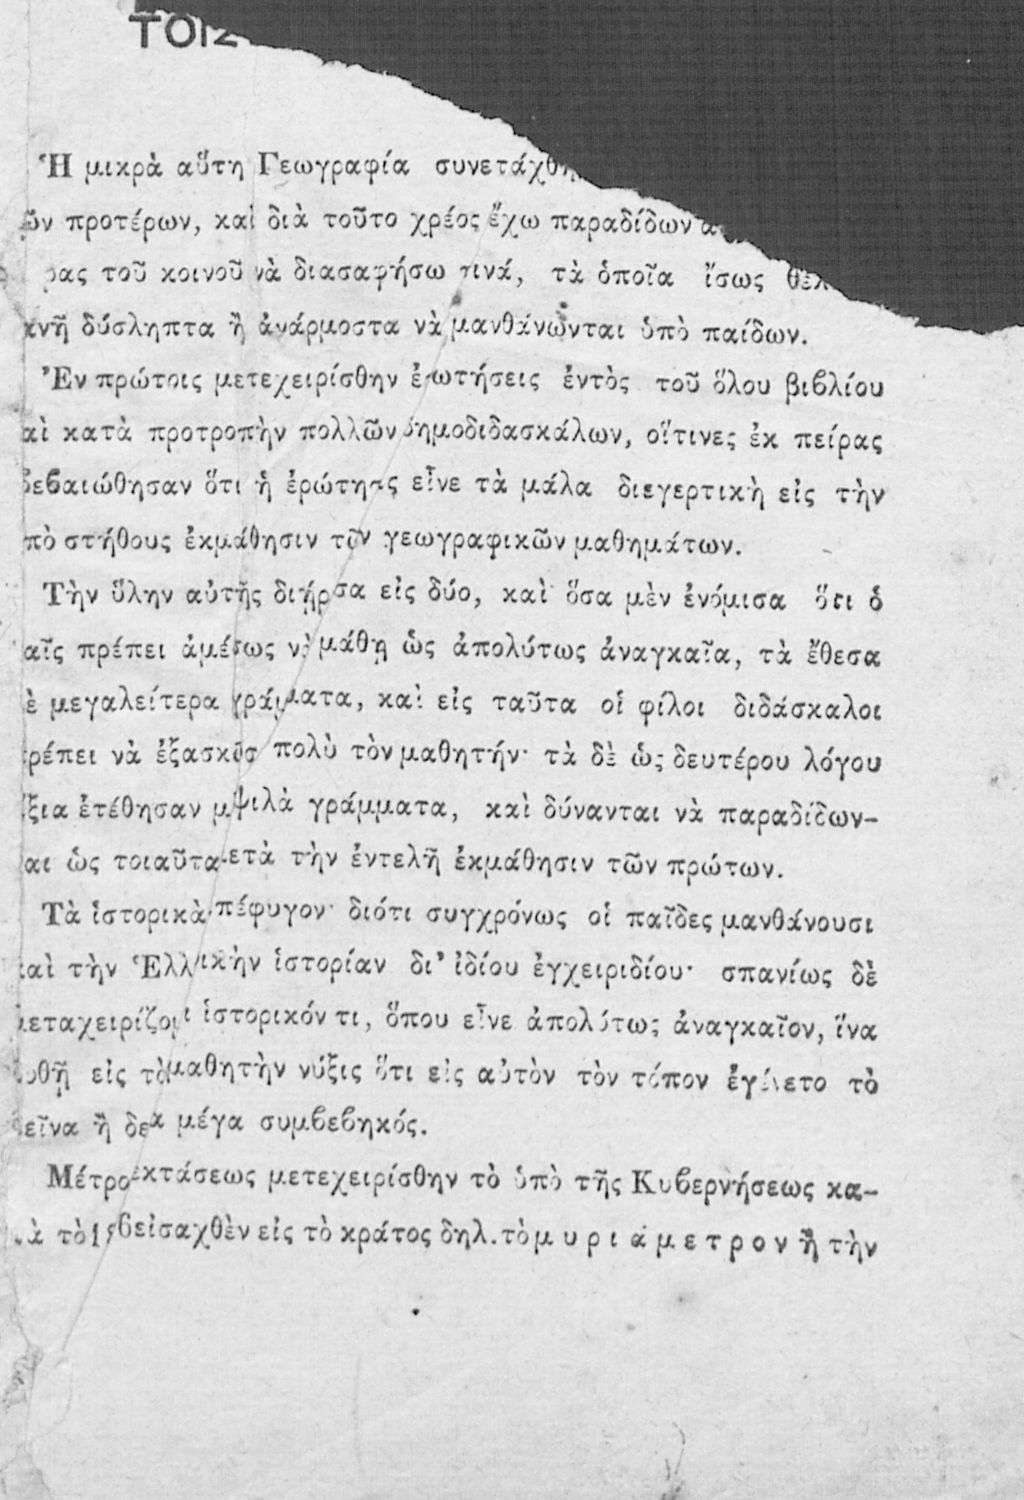 ΤΟΙΣ
Ἡ μικρὰ αὕτη Γεωγραφία συνετάχθη
προτέρων, καὶ διὰ τοῦτο χρέος ἔχω παραδίδων
τοῦ κοινοῦ νὰ διασαφήσω τινά, τὰ ὁποῖα ἴσως
δύσληπτα ἢ ἀνάρμοστα νὰ μανθάνωνται ὑπὸ παίδων.
Ἐν πρώτοις μετεχειρίσθην ἐρωτήσεις ἐντὸς τοῦ ὅλου βιβλίου
αὶ κατὰ προτροπὴν πολλῶν δημοδιδασκάλων, οἵτινες ἐκ πείρας
βεβαιώθησαν ὅτι ἡ ἐρώτησις εἶνε τὰ μάλα διεγερτικὴ εἰς τὴν
πὸ στήθους ἐκμάθησιν τῶν γεωγραφικῶν μαθημάτων.
Τὴν ὕλην αὐτῆς διῄρσα εἰς δύο, καὶ ὅσα μὲν ἐνόμισα ὅτι ὁ
αῖς πρέπει ἀμέσως νὰ μάθῃ ὡς ἀπολύτως ἀναγκαῖα, τὰ ἔθεσα
ὲ μεγαλείτερα γράμματα, καὶ εἰς ταῦτα οἱ φίλοι διδάσκαλοι
ρέπει νὰ ἐξασκῶσ πολὺ τὸν μαθητήν· τὰ δὲ ὡς δευτέρου λόγου
ξια ἐτέθησαν μ ψιλὰ γράμματα, καὶ δύνανται νὰ παραδίδων-
αι ὡς τοιαῦτα ετὰ τὴν ἐντελῆ ἐκμάθησιν τῶν πρώτων.
Τὰ ἱστορικὰ πέφυγον· διότι συγχρόνως οἱ παῖδες μανθάνουσι
καὶ τὴν Ἑλλ ικὴν ἱστορίαν δι' ἰδίου ἐγχειριδίου· σπανίως δὲ
μεταχειρίζομ ι ἱστορικόν τι, ὅπου εἶνε ἀπολύτως ἀναγκαῖον, ἵνα
οθῇ εἰς τὸ μαθητὴν νύξις ὅτι εἰς αὐτὸν τὸν τόπον ἐγένετο τὸ
δεῖνα ἢ δε α μέγα συμβεβηκός.
Μέτρο ἐκτάσεως μετεχειρίσθην τὸ ὑπὸ τῆς Κυβερνήσεως κα-
τὰ τὸ εἰσαχθὲν εἰς τὸ κράτος δηλ. τὸ μυριάμετρον ἢ τὴν